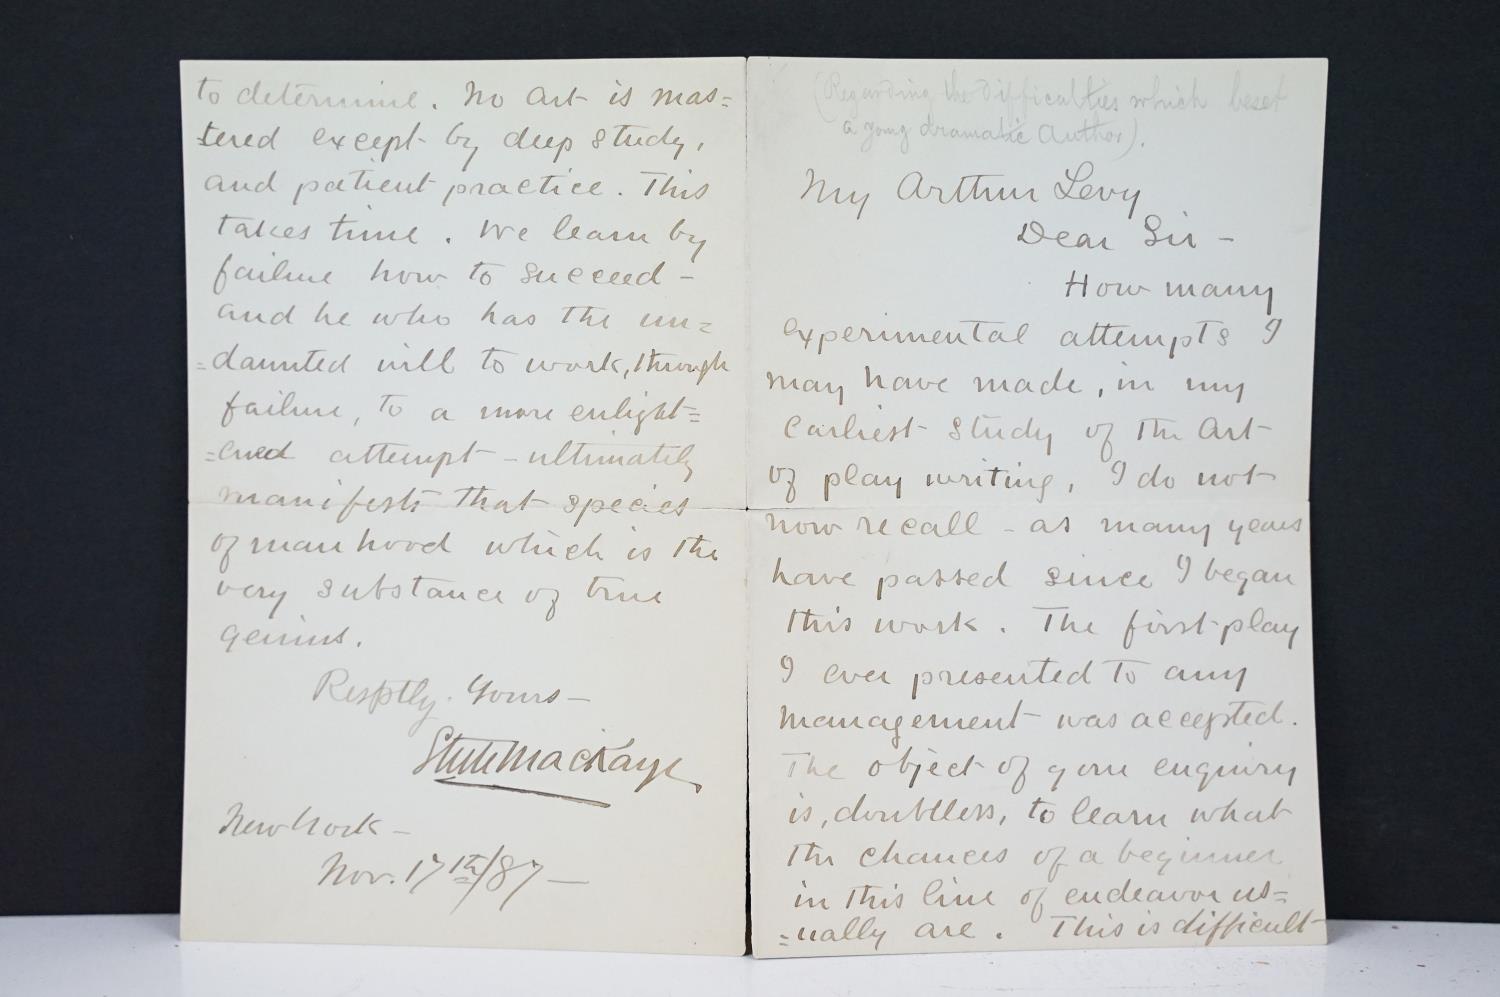 (Regarding the difficulties which beset
a young dramatic author).
My Arthur Levy
Dear Sir -
How many
experimental attempts I
may have made, in my
earliest study of the Art
of play writing, I do not
now recall - as many years
have passed since I began
this work. The first play
I ever presented to any
management was accepted.
The object of your enquiry
is, doubtless, to learn what
the chances of a beginner
in this line of endeavor us=
=ually are. This is difficult
to determine. No Art is mas=
tered except by deep study,
and patient practice. This
takes time. We learn by
failure how to succeed -
and he who has the un=
=daunted will to work, through
failure, to a more enlight=
=ened attempt - ultimately
manifests that species
of manhood which is the
very substance of true
genius.
Resptly. Yours -
Steele MacKaye
New York -
Nov. 17th/87 -